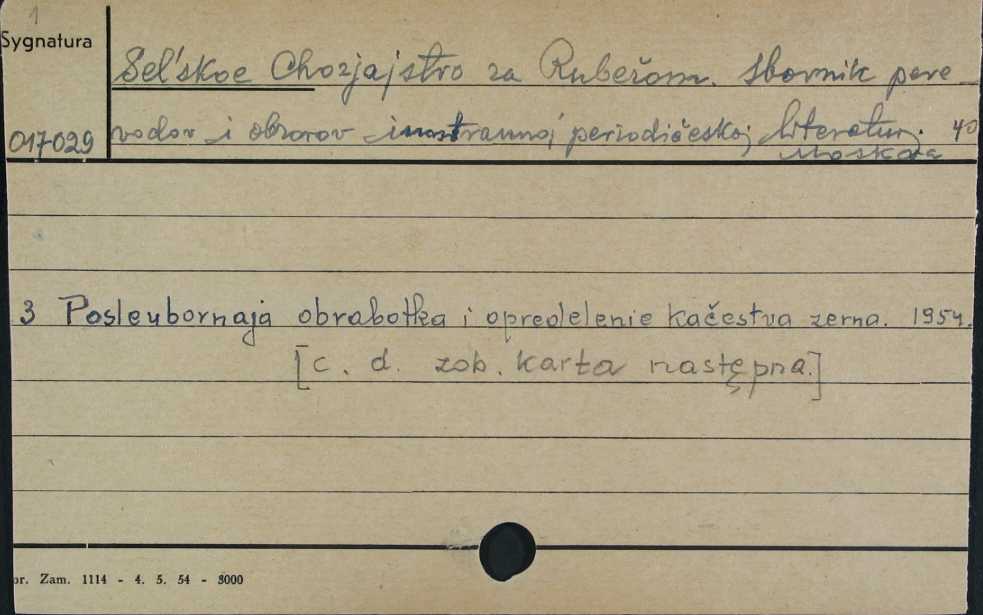 1
Sygnatura
Sel'skoe Chozjajstvo za Rubežom. Sbornik pere-
017029 vodov i obzorov inostrannoj periodičeskoj literatury. 4O
Moskva
3 Posleubornaja obrabotka i opredelenie kačestva zerna. 1954.
[c. d. zob. karta następna.]
or. Zam. 1114 - 4. 5. 54 - 3000